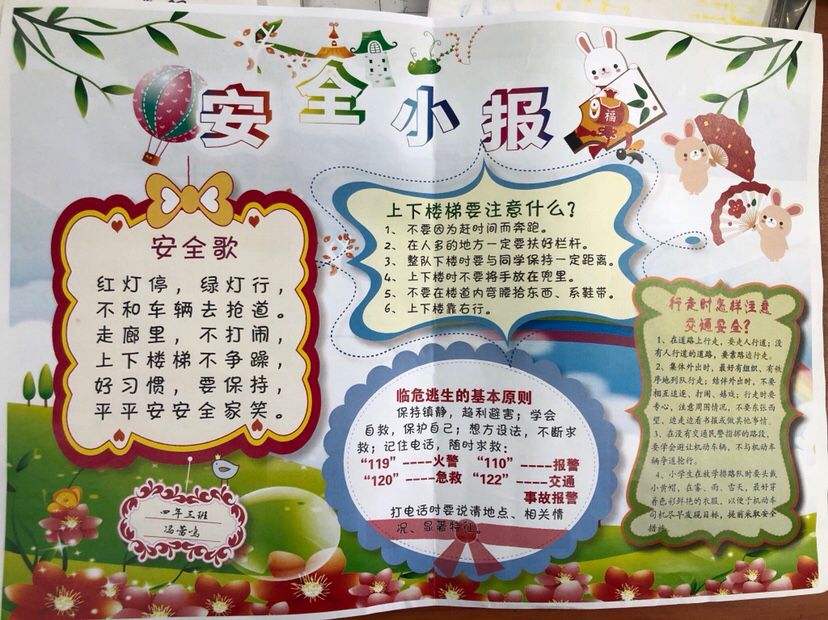 安全小报
福
安全歌
红灯停，绿灯行，
不和车辆去抢道。
走廊里，不打闹，
上下楼梯不争躁，
好习惯，要保持，
平平安安全家笑。
上下楼梯要注意什么？
1、不要因为赶时间而奔跑。
2、在人多的地方一定要扶好栏杆。
3、整队下楼时要与同学保持一定距离。
4、上下楼时不要将手放在兜里。
5、不要在楼道内弯腰拾东西、系鞋带。
6、上下楼靠右行。
临危逃生的基本原则
保持镇静，趋利避害；学会
自救，保护自己；想方设法，不断求
救；记住电话，随时求救：
“119”----火警 “110”-----报警
“120”----急救 “122”-----交通
事故报警
打电话时要说请地点、相关情
况、显著特征。
行走时怎样注意
交通安全？
1、在道路上行走，要走人行道；没
有人行道的道路，要靠路边行走。
2、集体外出时，最好有组织、有秩
序地列队行走；结伴外出时，不要
相互追逐、打闹、嬉戏；行走时要
专心，注意周围情况，不要东张西
望、边走边看书报或做其他事情。
3、在没有交通民警指挥的路段，
要学会避让机动车辆，不与机动车
辆争道抢行。
4、小学生在放学排路队时要头戴
小黄帽，在雾、雨、雪天，最好穿
着色彩鲜艳的衣服，以便于机动车
司机尽早发现目标，提前采取安全
措施。
四年三班